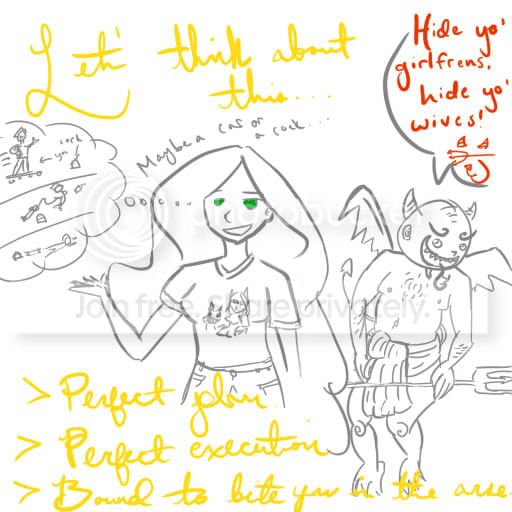 Let's think about
this....
Hide yo'
girlfrens,
hide yo'
wives!
Maybe a cas or
a cock...
rock
photobucket
Join free. Share privately.
> Perfect plan
> Perfect execution
> Bound to bite you in the arse